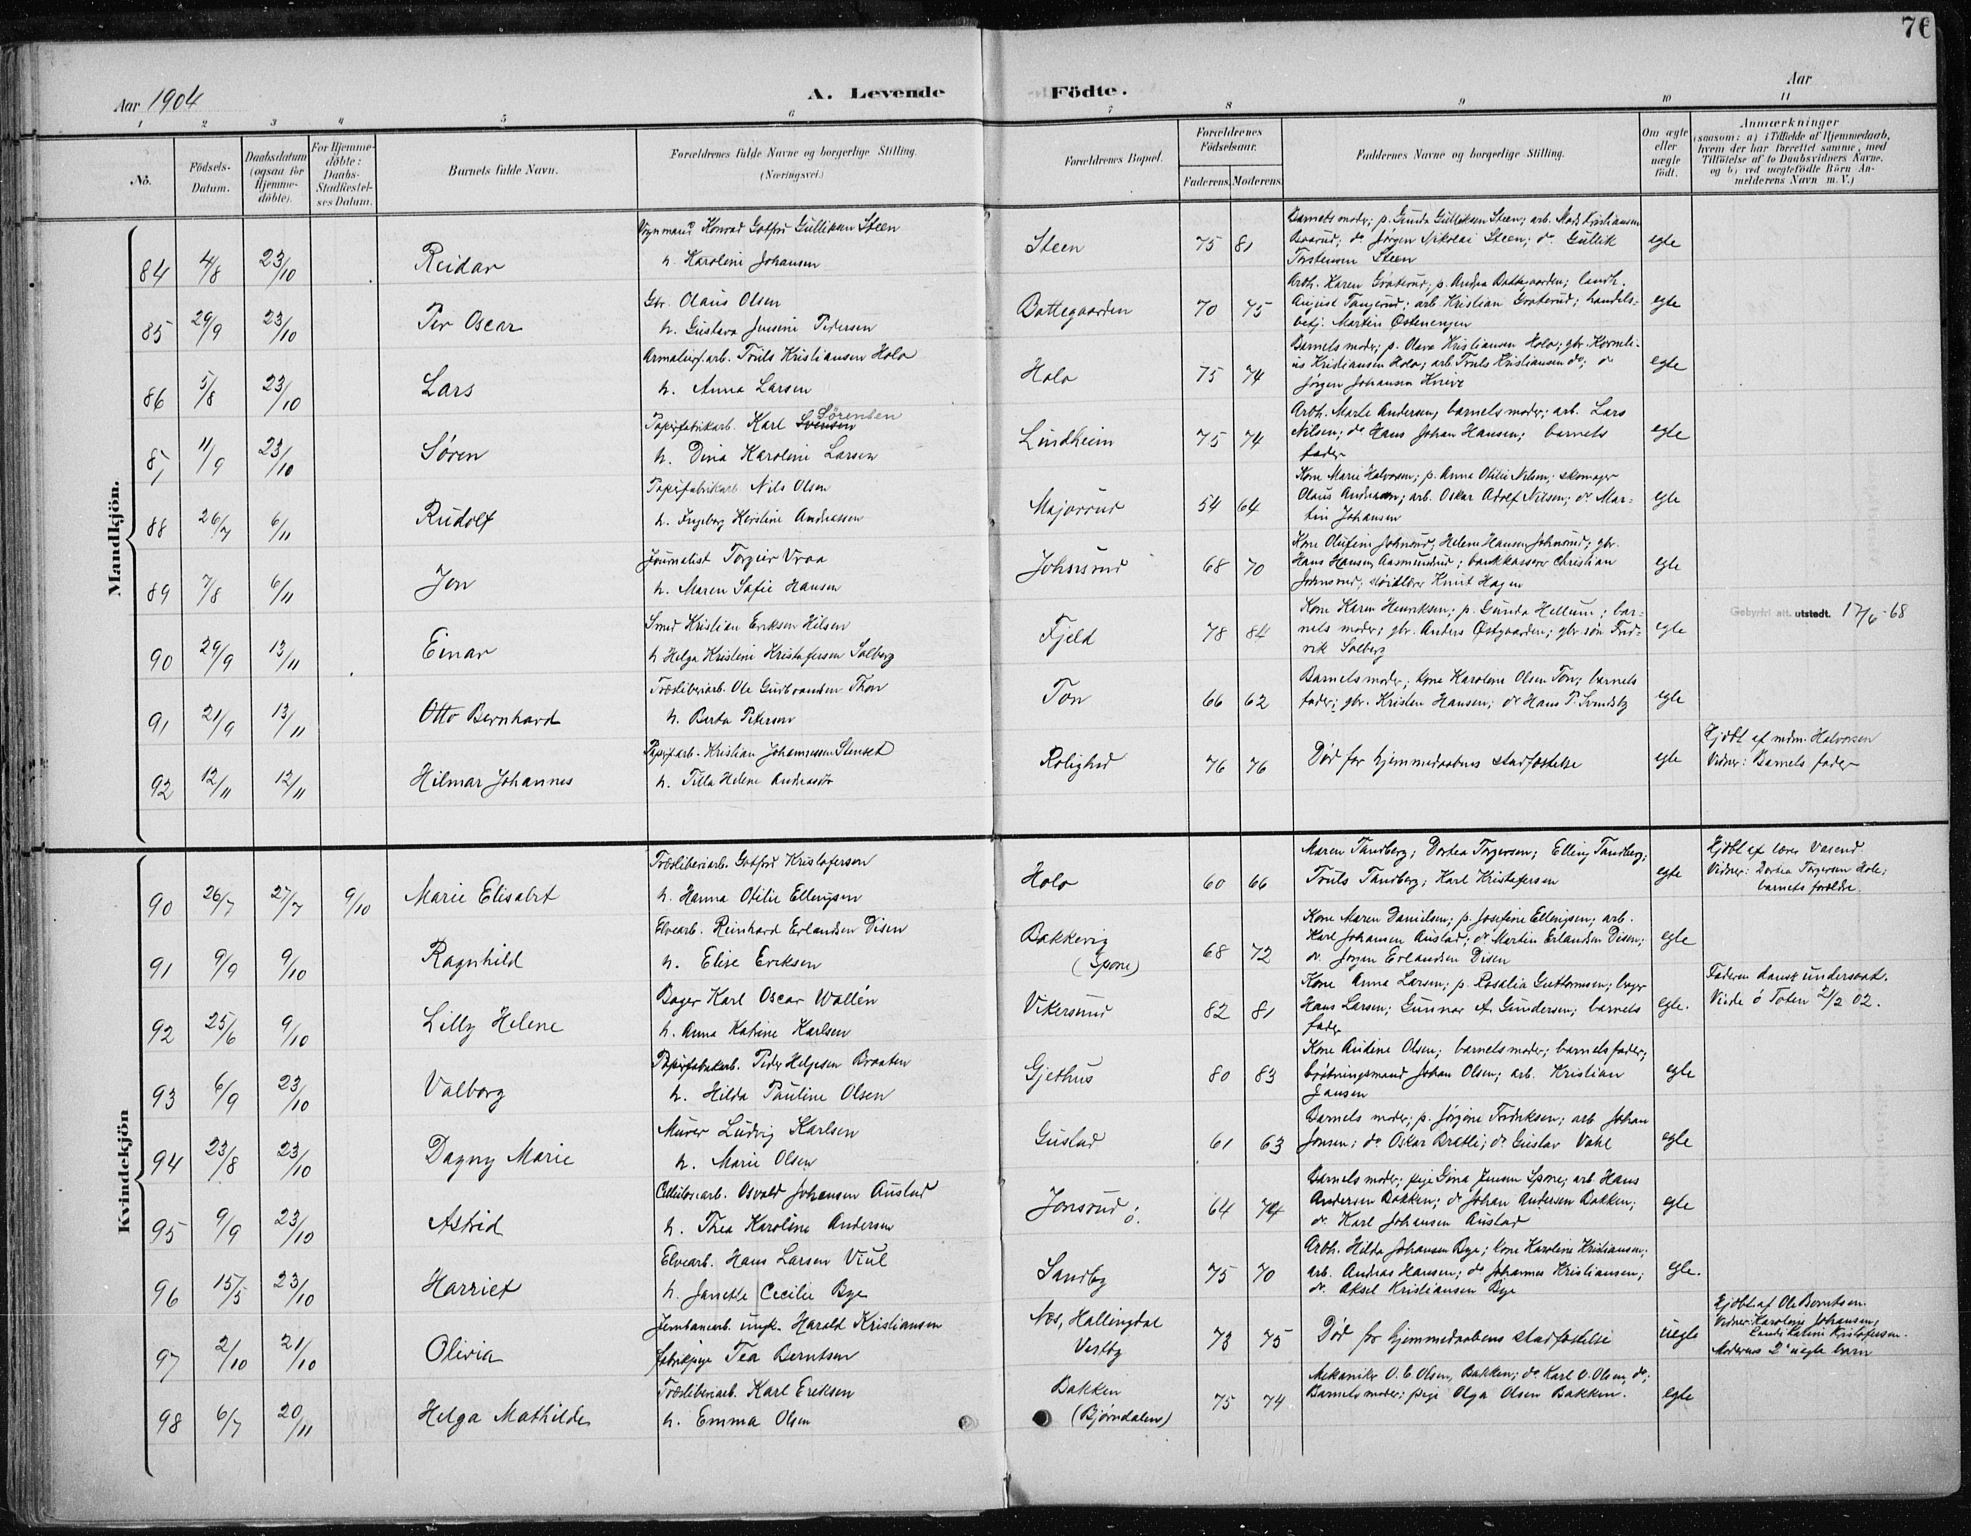 76
Aar 1904
A. Levende
Födte.
Aar
1 2 3 4 5 6 7 8 9 10 11
No.
Födsels-Datum.
Daabsdatum (ogsaa for Hjemme-döbte).
For Hjemme-döbte: Daabs-Stadfæstel-ses Datum.
Barnets fulde Navn.
Forældrenes fulde Navne og borgerlige Stilling. (Næringsvei.)
Forældrenes Bopæl.
Forældrenes Födselsaar.
Faderens. Moderens.
Faddernes Navne og borgerlige Stilling.
Om ægte eller uægte födt.
Anmærkninger
(saasom: a) i Tilfælde af Hjemmedaab,
hvem der har forrettet samme, med
Tilföielse af to Daabsvidners Navne.
og b) ved uægtefödte Börn An-
melderens Navn m. V.)
Mandkjön.
84 4/8 23/10 Reidar
Konrad Gotfred Gulliksen Steen
h. Karoline Johansen
Steen 75 81
Barnets moder; p. Gunda Gulliksen Steen; arb. Mads Kristiansen
Baarud; do Jørgen Nikolai Steen; do. Gullik
Torstensen Steen
egte
85 29/9 23/10 Per Oscar
Gbr. Olaus Olsen
h. Gustava Jensine Pedersen
Bottegaarden 70 75
Arbh. Karen Graterud; p. Andrea Bottegaarden; landh.
August Tangerud; arb. Kristian Graterud; handels-
betj. Martin Østenengen
egte
86 5/8 23/10 Lars
arb. Truls Kristiansen Holo
h. Anna Larsen
Holo 75 74
Barnets moder; p. Olava Kristiansen Holo; gbr. Korneli-
us Kristiansen Holo; arb. Truls Kristiansen do; do
Jørgen Johansen Knive
egte
87 11/9 23/10 Søren
Papirfabrikarb. Karl Svensen Sørensen
h. Dina Karoline Larsen
Lindheim 75 74
Arbh. Marte Andersen, barnets moder; arb. Lars
Nilsen; do Hans Johan Hansen; barnets
fader
egte
88 26/7 6/11 Rudolf
Papirfabrikarb. Nils Olsen
h. Ingeborg Kirstine Andreassen
Majorrud 54 64
Kone Marie Halvorsen; p. Anna Otilie Nilsen; skomager
Olaus Andreasen; arb. Oskar Adolf Nilsen; do Mar-
tin Johansen
egte
89 7/8 6/11 Jon
Journalist Torgeir Vraa
h. Maren Sofie Hansen
Johnsrud 68 70
Kone Olufine Johnsrud; Helene Hansen Johnsrud; gbr.
Hans Hansen Aasmundrud; bankkasserer Christian
Johnsrud; sløidlærer Knut Hagen
egte
90 29/9 13/11 Einar
Smed Kristian Eriksen Hilsen
h. Helga Kristine Kristofersen Solberg
Fjeld 78 84
Kone Karen Henriksen; p. Gunda Hellum; bar-
nets moder; gbr. Anders Østgaarden; gbr. søn Fred-
rik Solberg
egte
Gebyrfri att. utstedt. 17/6-68
91 21/9 13/11 Otto Bernhard
Træsliberiarb. Ole Gudbrandsen Thon
h. Berta Petersen
Ton 66 62
Barnets moder; kone Karoline Olsen Ton; barnets
fader; gbr. Kristen Hansen; do Hans P. Svendsby
egte
92 12/11 12/11 Hilmar Johannes
Papirfarb. Kristian Johannessen Stenset
h. Tilla Helene Andreasdr
Rolighed 76 76
Død før hjemmedaabens stadfæstelse
egte
Hjdøbt af mdm. Halvorsen
Vidner: Barnets fader
Kvindekjön
90 26/7 27/7 9/10 Marie Elisabet
Træsliberiarb. Gotfred Kristofersen
h. Hanna Otilie Ellingsen
Holo 60 66
Maren Tandberg; Dortea Torgersen; Elling Tandberg;
Truls Tandberg; Karl Kristofersen
egte
Hjdøbt af lærer Vasend
Vidner: Dortea Torgersen Hole;
barnets forældre.
91 9/9 9/10 Ragnhild
Elvearb. Reinhard Erlandsen Disen
h. Elise Eriksen
Bakkevig
(Spone) 68 72
Kone Maren Danielsen; p. Josefine Ellingsen; arb.
Karl Johansen Austad; do Martin Erlandsen Disen;
do. Jørgen Erlandsen Disen
egte
92 25/6 9/10 Lilly Helene
Bager Karl Oscar Wallén
h. Anna Katrine Karlsen
Vikersund 82 81
Kone Anna Larsen; p. Rosalia Guttormsen; bager
Hans Larsen; Gunnar A. Gundersen; barnets
fader
egte.
Faderen dansk undersaat.
Viede ö Toten 2/2 02.
93 6/9 23/10 Valborg
Papirfabrikarb. Peder Helgesen Braaten
h. Hilda Pauline Olsen
Gjethus 80 83
Kone Andine Olsen; barnets moder; barnets fader;
brøtningsmand Johan Olsen; arb. Kristian
Jansen
egte
94 23/8 23/10 Dagny Marie
Murer Ludvig Karlsen
h. Marie Olsen
Gustad 61 63
Barnets moder; p. Jørgine Fredriksen; arb Johan
Jonsen; do Oskar Bratli; do Gustav Vahl
egte
95 9/9 23/10 Astrid
Cellulosearb. Osvald Johansen Austad
h. Thea Karoline Andersen
Jonsrud ö. 64 74
Barnets moder; pige Gina Jensen Spone; arb Hans
Andersen Bakken; do Johan Andersen Bakken;
do. Karl Johansen Austad
egte
96 15/5 23/10 Harriet
Elvearb. Hans Larsen Viul
h. Janette Cecilie Bye
Sandby 75 70
Arbh. Hilda Johansen Bye; kone Karoline Kristiansen;
arb. Andreas Hansen; do Johannes Kristiansen;
do. Aksel Kristiansen Bye
egte.
97 2/10 21/10 Olivia
Jernbanearb. ungk. Harald Kristiansen
fabrikpige Tea Berntsen
Næs, Hallingdal
Vestby 73 75
Død før hjemmedaabens stadfæstelse
uegte
Hjdøbt af Ole Berntsen.
Vidner: Karoline Johansen,
Kristofersen.
Moderens 2' uegte barn
98 6/7 20/11 Helga Mathilde
Træsliberiarb. Karl Eriksen
h. Emma Olsen
Bakken
(Bjørndalen) 75 74
Mekaniker O. C. Olsen, Bakken; do Karl O. Olsen, do;
Barnets moder; pige Olga Olsen Bakken.
egte